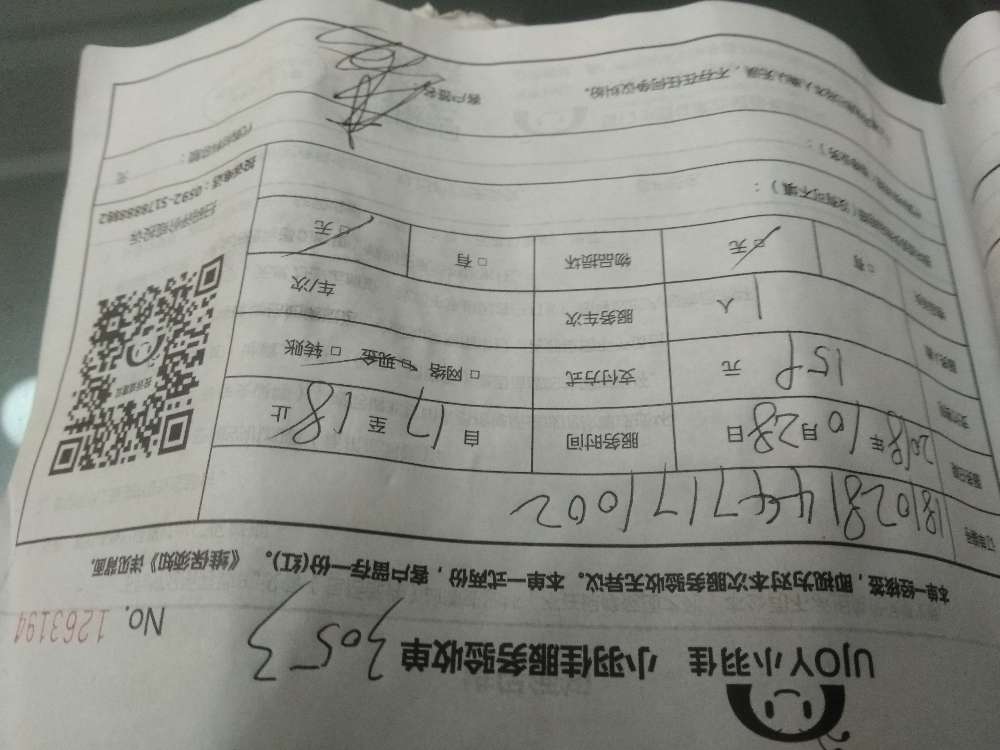 UJOY小羽佳 小羽佳服务验收单 3053
No. 1263194
本单一经核签，即视为对本次服务验收无异议。本单一式两份，客户留存一份(红)。《维保须知》详见背面。
订单编号 1810281447171002
服务日期 2018年10月28日 服务时间 自17至18止
159元 支付方式 □网络 □现金 □转账
服务人数 1人 服务车次 车/次
□有 □无 物品损坏 □有 □无
(没有可不填)：
扫码评价或投诉
投诉电话：
元
不存在任何争议纠纷。 客户签名